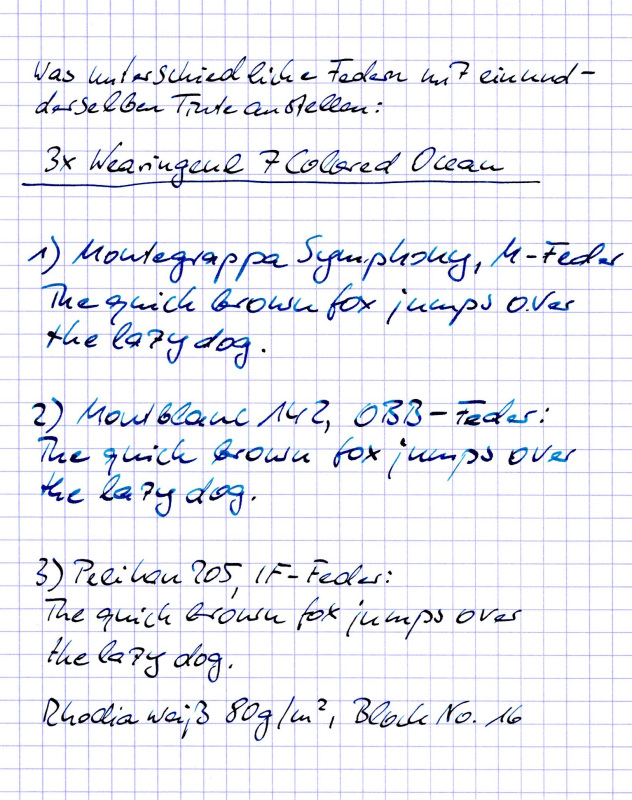 Was unterschiedliche Federn mit ein und -
derselben Tinte anstellen:
3x Wearingeul 7 Colored Ocean
1) Montegrappa Symphony, M-Feder
The quick brown fox jumps over
the lazy dog.
2) Montblanc 142, OBB-Feder:
The quick brown fox jumps over
the lazy dog.
3) Pelikan 205, IF-Feder:
The quick brown fox jumps over
the lazy dog.
Rhodia weiß 80g/m², Block No. 16